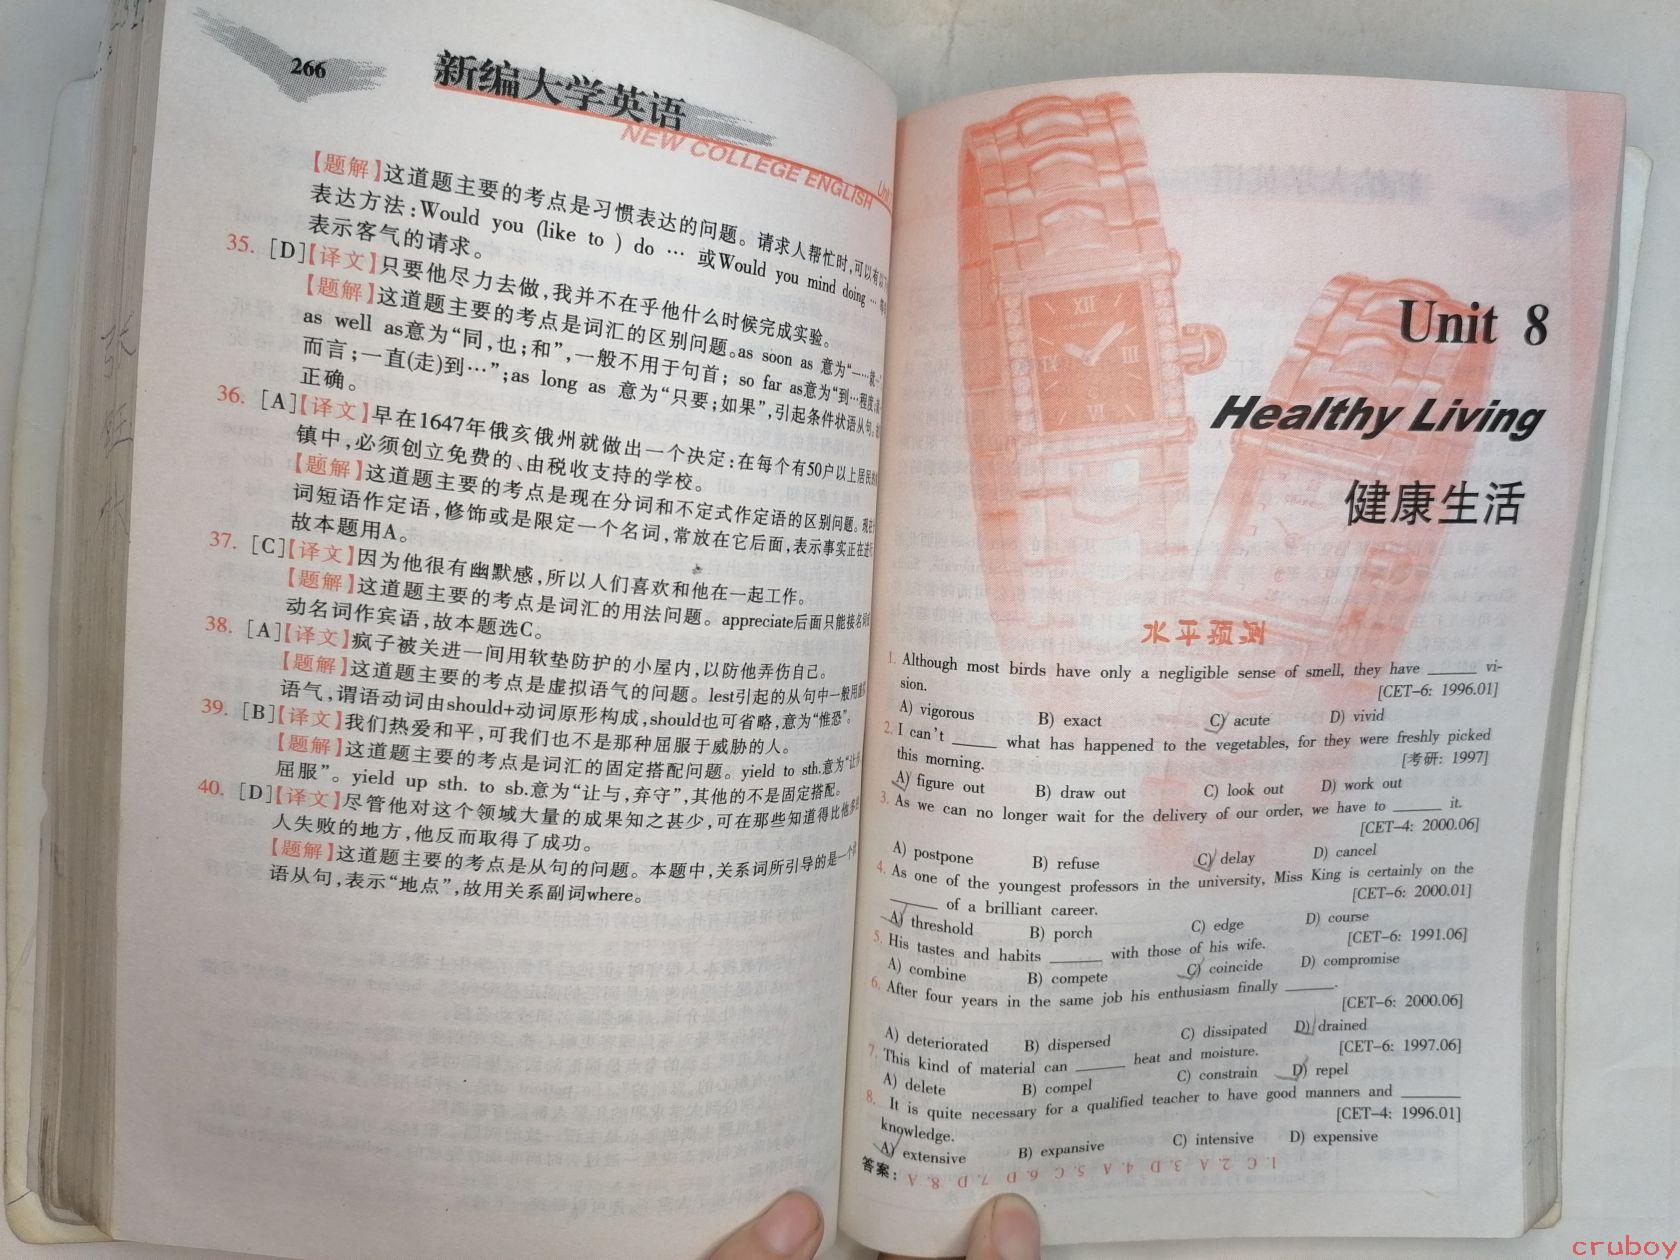 266
新编大学英语
NEW COLLEGE ENGLISH
【题解】这道题主要的考点是习惯表达的问题。请求人帮忙时,可以有以下
表达方法:Would you (like to ) do … 或Would you mind doing …
表示客气的请求。
35. [D]【译文】只要他尽力去做,我并不在乎他什么时候完成实验。
【题解】这道题主要的考点是词汇的区别问题。as soon as 意为“一…就…
as well as意为“同,也;和”,一般不用于句首; so far as意为“到…程度;
而言;一直(走)到…”;as long as 意为“只要;如果”,引起条件状语从句,
正确。
36. [A]【译文】早在1647年俄亥俄州就做出一个决定:在每个有50户以上居民的
镇中,必须创立免费的、由税收支持的学校。
【题解】这道题主要的考点是现在分词和不定式作定语的区别问题。现在
词短语作定语,修饰或是限定一个名词,常放在它后面,表示事实正在进行
故本题用A。
37. [C]【译文】因为他很有幽默感,所以人们喜欢和他在一起工作。
【题解】这道题主要的考点是词汇的用法问题。appreciate后面只能接名词或
动名词作宾语,故本题选C。
38. [A]【译文】疯子被关进一间用软垫防护的小屋内,以防他弄伤自己。
【题解】这道题主要的考点是虚拟语气的问题。lest引起的从句中一般用虚拟
语气,谓语动词由should+动词原形构成,should也可省略,意为“惟恐”。
39. [B]【译文】我们热爱和平,可我们也不是那种屈服于威胁的人。
【题解】这道题主要的考点是词汇的固定搭配问题。yield to sth.意为“让步
屈服”。yield up sth. to sb.意为“让与,弃守”,其他的不是固定搭配。
40. [D]【译文】尽管他对这个领域大量的成果知之甚少,可在那些知道得比他多的
人失败的地方,他反而取得了成功。
【题解】这道题主要的考点是从句的问题。本题中,关系词所引导的是一个状
语从句,表示“地点”,故用关系副词where。
Unit 8
Healthy Living
健康生活
水平预测
1. Although most birds have only a negligible sense of smell, they have _____ vi-
sion. [CET–6: 1996.01]
A) vigorous B) exact C) acute D) vivid
2. I can't _____ what has happened to the vegetables, for they were freshly picked
this morning. [考研: 1997]
A) figure out B) draw out C) look out D) work out
3. As we can no longer wait for the delivery of our order, we have to _____ it.
[CET–4: 2000.06]
A) postpone B) refuse C) delay D) cancel
4. As one of the youngest professors in the university, Miss King is certainly on the
_____ of a brilliant career. [CET–6: 2000.01]
A) threshold B) porch C) edge D) course
5. His tastes and habits _____ with those of his wife. [CET–6: 1991.06]
A) combine B) compete C) coincide D) compromise
6. After four years in the same job his enthusiasm finally _____.
[CET–6: 2000.06]
A) deteriorated B) dispersed C) dissipated D) drained
7. This kind of material can _____ heat and moisture. [CET–6: 1997.06]
A) delete B) compel C) constrain D) repel
8. It is quite necessary for a qualified teacher to have good manners and _____
knowledge. [CET–4: 1996.01]
A) extensive B) expansive C) intensive D) expensive
答案: 1. C 2. A 3. D 4. A 5. C 6. D 7. D 8. A
cruboy